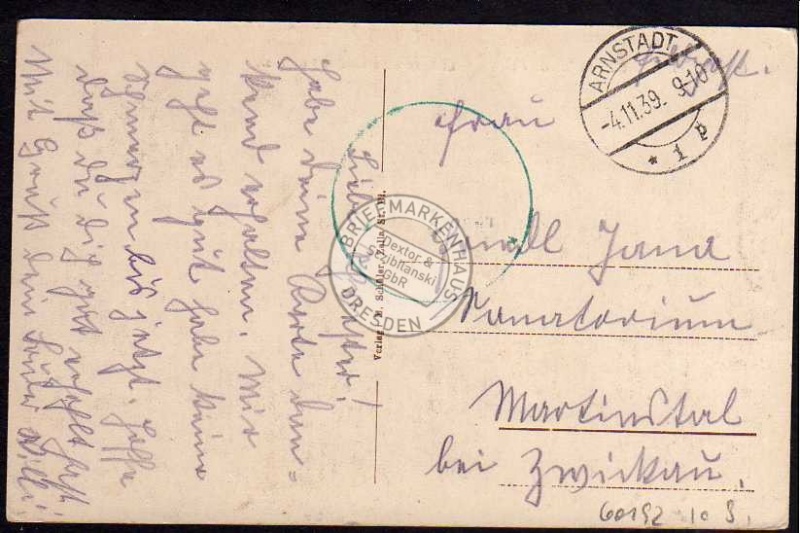 Liebe Schwester!
Habe deine Karte dan-
kend erhalten. Mir
geht es gut habe keine
Schmerzen bis jetzt. Hoffe
daß du dich gut erholt hast.
Mit Gruß dein Bruder Willi
Verlag
ARNSTADT
-4.11.39. 9-10
* 1 p
Frau
Jana
Sanatorium
Martinstal
bei Zwickau.
60192 10
BRIEFMARKENHAUS
Dextor &
Strzibitanski
GbR
DRESDEN